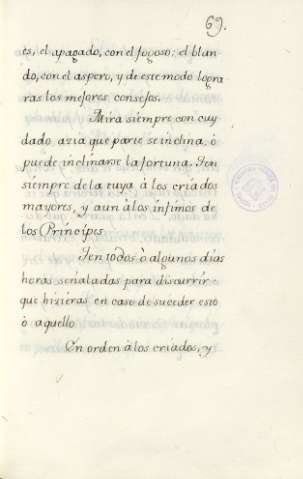 69.
es, el apagado, con el fogoso; el blan
do, con el aspero, y de este modo logra
ras los mejores consejos.
Mira siempre con cuy
dado azia que parte se inclina, ò
puede inclinarse la fortuna. Ten
siempre de la tuya à los criados
mayores, y aun à los infimos de
los Principes
Ten todos o algunos dias
horas señaladas para discurrir
que hizieras en caso de suceder esto
ò aquello
En orden à los criados, y